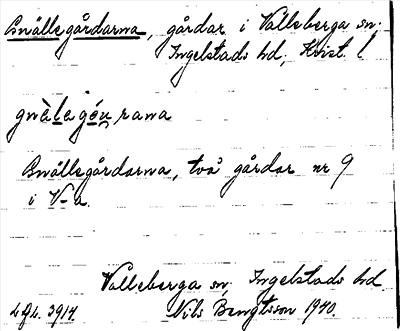 Gnällegårdarna, gårdar i Valleberga sn.
Ingelstads hd, Krist. l
gnàlagóu̯rana
Gnällegårdarna, två gårdar nr 9
i V-a.
Valleberga sn, Ingelstads hd.
LAL. 3914 Nils Bengtsson 1940.